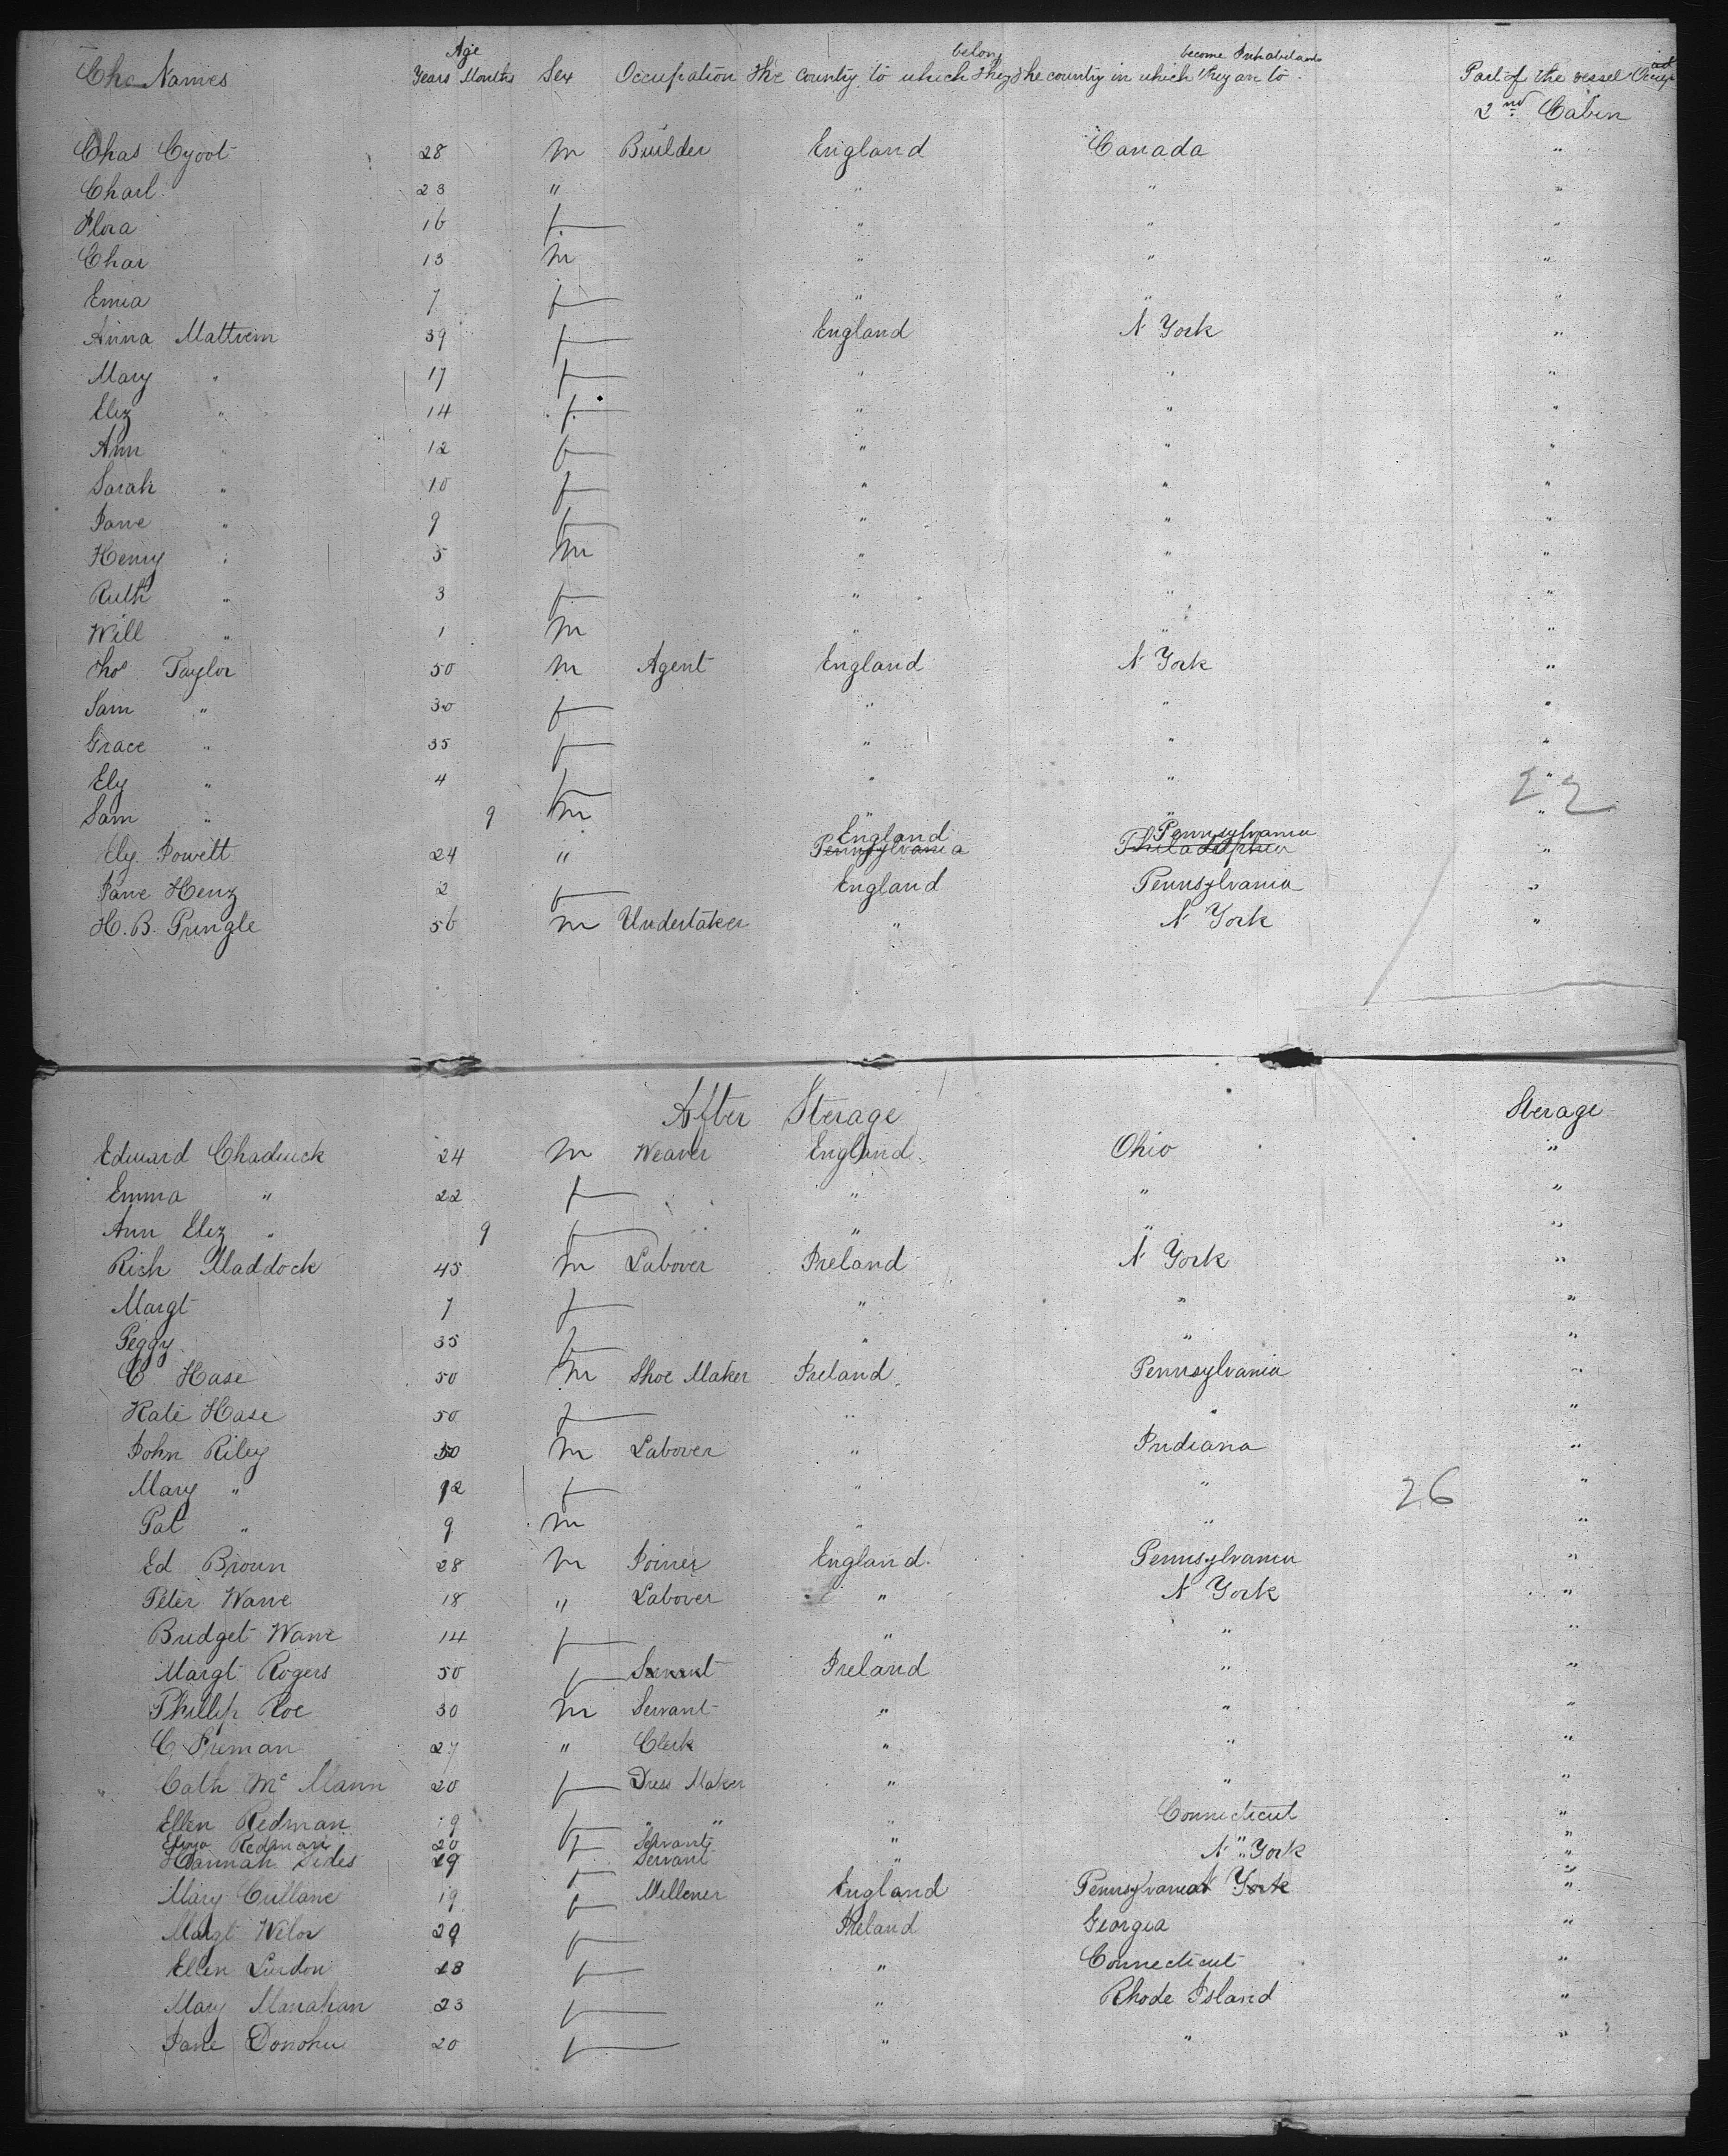 The Names Age Years Months Sex Occupation The Country to which they belong The country in which they are to become Inhabitants Part of the vessel Occupied
2nd Cabin
Chas Cyoot 28 m Builder England Canada "
Charl 23 " " " "
Flora 16 f " " "
Char 13 m " " "
Emia 7 f " " "
Anna Mattvem 39 f England N York "
Mary " 17 f " " "
Eliz " 14 f " " "
Ann " 12 f " " "
Sarah " 10 f " " "
Jane " 9 f " " "
Henry " 5 m " " "
Ruth " 3 f " " "
Will " 1 m " " "
Thos Taylor 50 m Agent England N York "
Sam " 30 f " " "
Grace " 35 f " " "
Ely " 4 f " " "
22
Sam " 9 m " " "
England Pennsylvania
Ely Powett 24 " Pennsylvania Philadelphia "
Jane Henz 2 f England Pennsylvania "
H. B. Pringle 56 m Undertaker " N York "
After Sterage Sterage
Edward Chadwick 24 m Weaver England Ohio "
Emma " 22 f " " "
Ann Eliz " 9 f " " "
Rich Maddock 45 m Labover Ireland N York "
Margt 7 f " " "
Peggy 35 f " " "
C Hase 50 m Shoe Maker Ireland Pennsylvania "
Kate Hase 50 f " " "
John Riley 50 m Labover " Indiana "
Mary " 12 f " " "
26
Pat " 9 m " " "
Ed Broun 28 m Joiner England Pennsylvania "
Peter Wane 18 " Labover " N York "
Bridget Wane 14 f " " "
Margt Rogers 50 f Servant Ireland " "
Phillip Roe 30 m Servant " " "
C Freman 27 " Clerk " " "
" Cath Mc Mann 20 f Dress Maker " " "
Ellen Redman 19 f " " " Connecticut "
Eliza Redman 20 f Servant " " "
Hannah Sides 29 f Servant " N York "
Mary Cullane 19 f Millener England Pennsylvania N York "
Margt Welov 29 f Ireland Georgia "
Ellen Lurdon 28 f " Connecticut "
Mary Manahan 23 f " Rhode Island "
Jane Donohu 20 f " " "